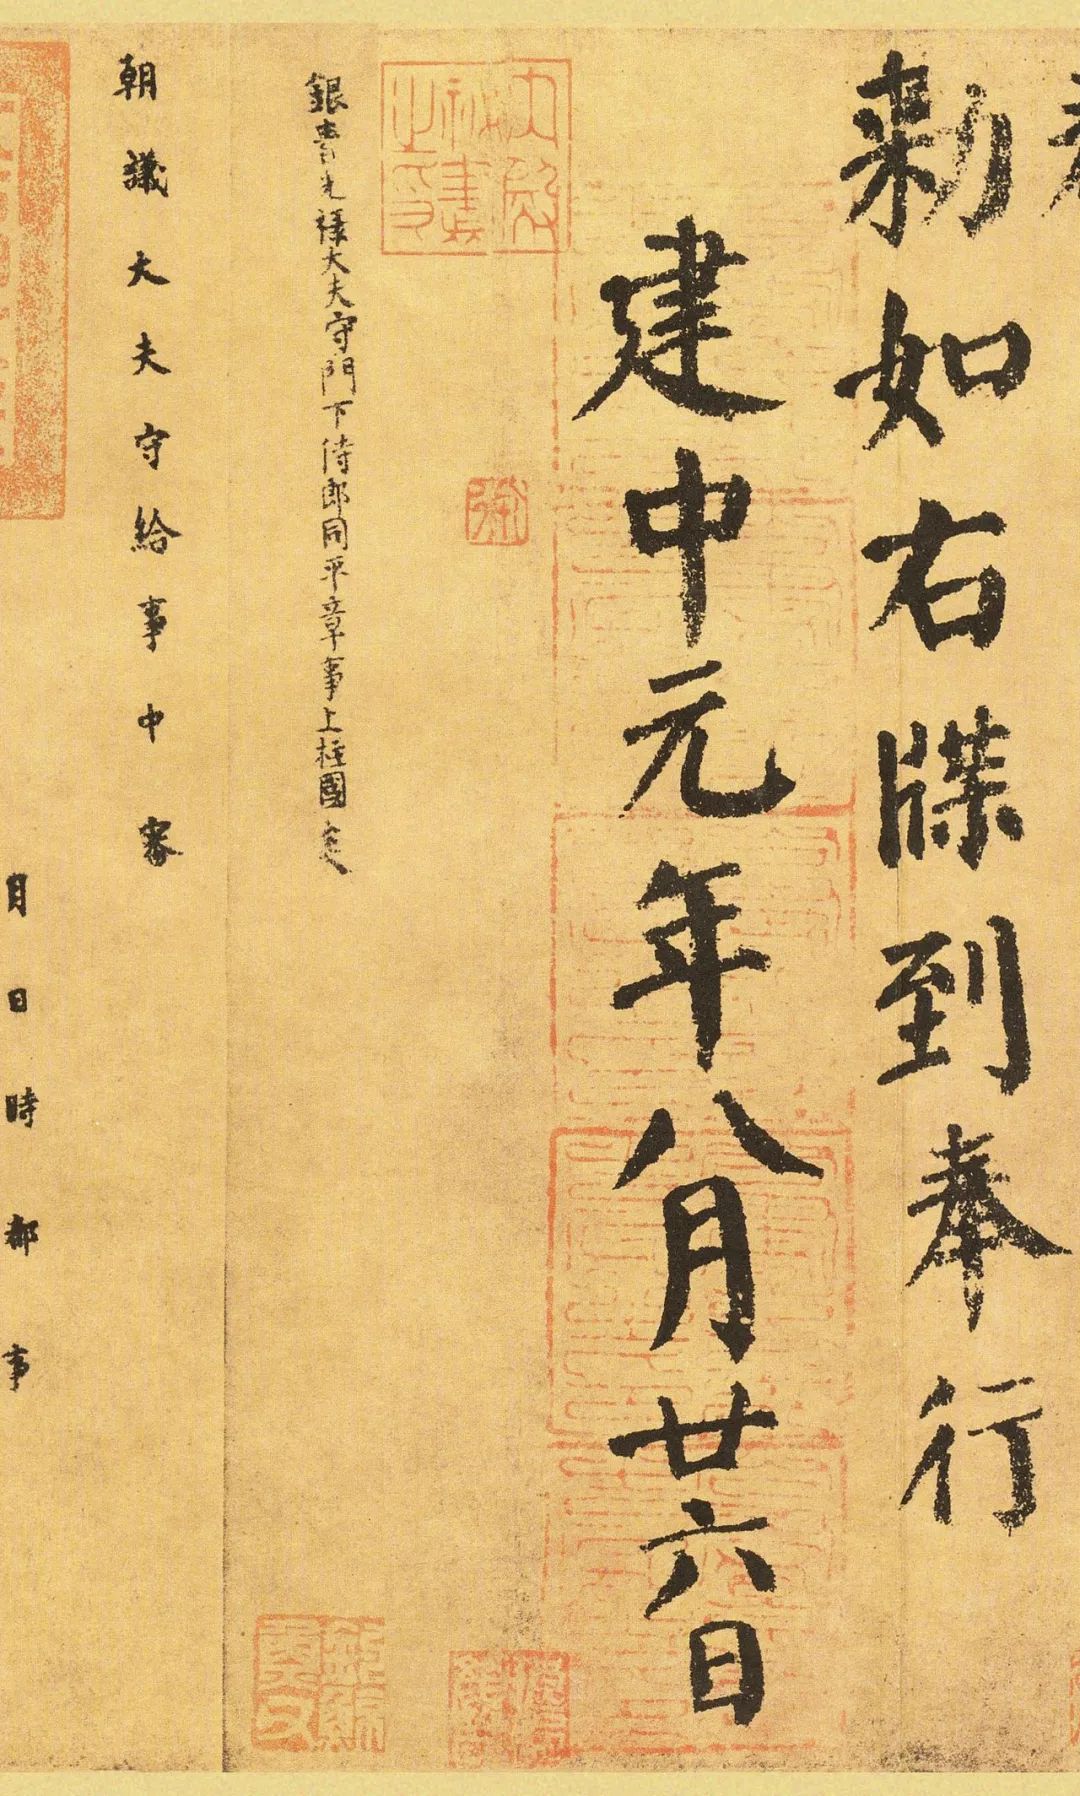 勑如右牒到奉行
建中元年八月廿六日
銀青光祿大夫守門下侍郎同平章事上柱國
朝議大夫守給事中審
月日時都事